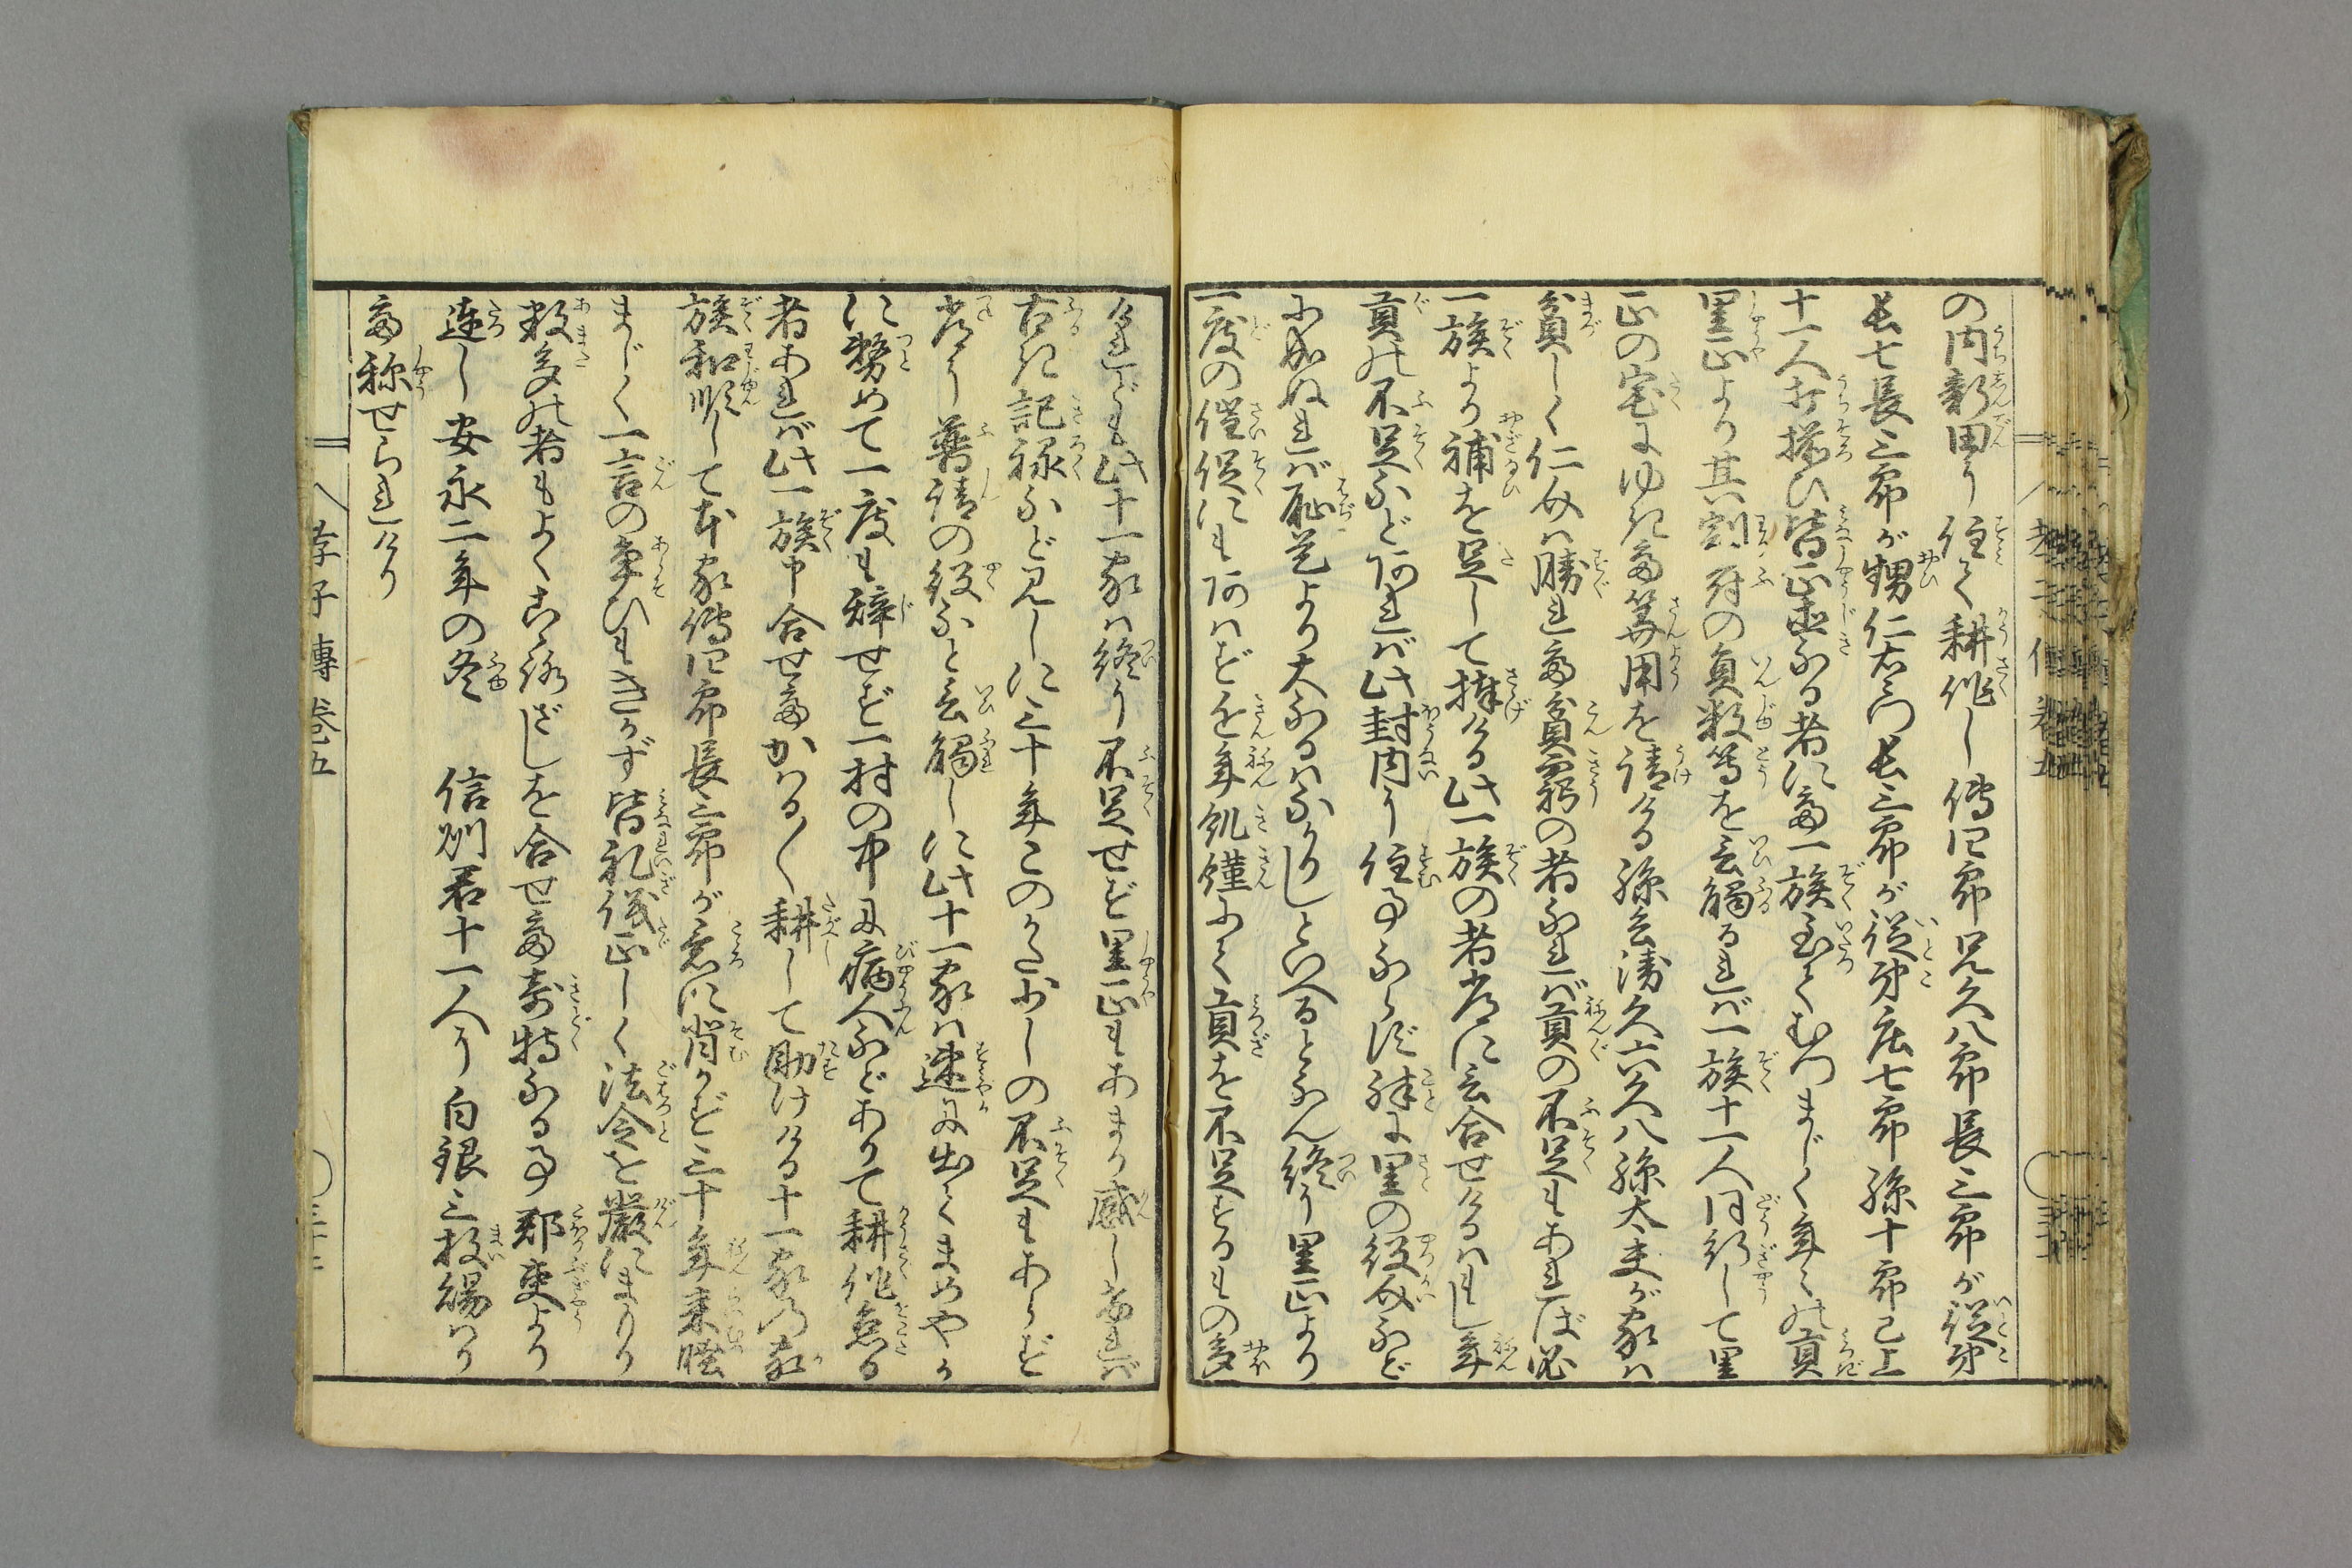 の内新田に住て耕作し傳四郎兄久八郎長三郎が従弟
長七長三郎が甥仁右衛門長三郎が従弟庄七郎孫十郎已上
十一人打揃ひ皆正直なる者にて一族至てむつまじく年々の貢
里正より其割符の員数等を云觸るれば一族十一人同行して里
正の宅にゆきて算用を請ける孫兵衛久六久八孫太夫が家は
貧しく仁介は勝れて貧窮の者なれば貢の不足もあれば必
一族より補を足して捧げる此一族の者常に云合せけるはもし年
貢の不足など有れば此封内に住事ならず殊に里の役介など
に成ぬれば恥是より大なるはなかりしといへるとなん終に里正より
一度の催促にも及はず凶年飢饉にて貢を不足するもの多
けれども此十一家は終に不足せず里正もあまり感じければ
古き記禄など見しに三十年このかた少しの不足もあらず
常に普請の役などと云觸しに此十一家は速に出てまめやか
に勤めて一度も辞せず一村の中に病人などありて耕作怠る
者あれば此一族申合せてかはる〱耕して助けける十一家の
族和順して本家傳四郎長三郎が意に背かず三十年来睦
まじく一言の争ひもきかず皆礼儀正しく法令を嚴にまもり
数多の者もよくこゝろざしを合せて奇特なる事郡吏より
達し安永二年の冬　信州君十一人に白銀三枚賜はり
て称せられけり
孝子傳卷五